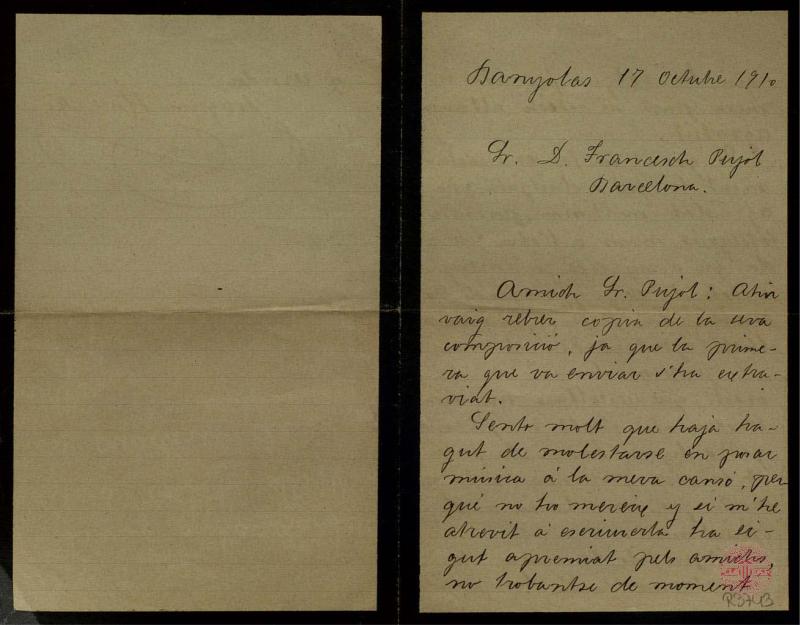 Banyolas 17 Octubre 1910
Sr. D. Francesch Pujol
Barcelona.
Amich Sr. Pujol: Ahir
vaig rebrer copia de la seva
composició, ja que la prime-
ra que va enviar s'ha extra-
viat.
Sento molt que haja ha-
gut de molestarse en posar
música á la meva cansó, per
qué no ho mereix y si m'he
atrevit á escriurerla ha si-
gut apremiat pels amichs,
no trobantse de moment
R3743